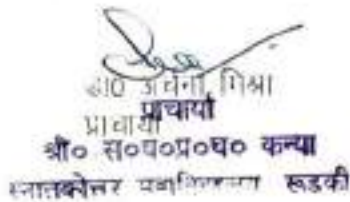 डा० अर्चना मिश्रा
प्राचार्या
प्राचार्या
श्री० स०ध०प्र०घ० कन्या
स्नातकोत्तर रूडकी